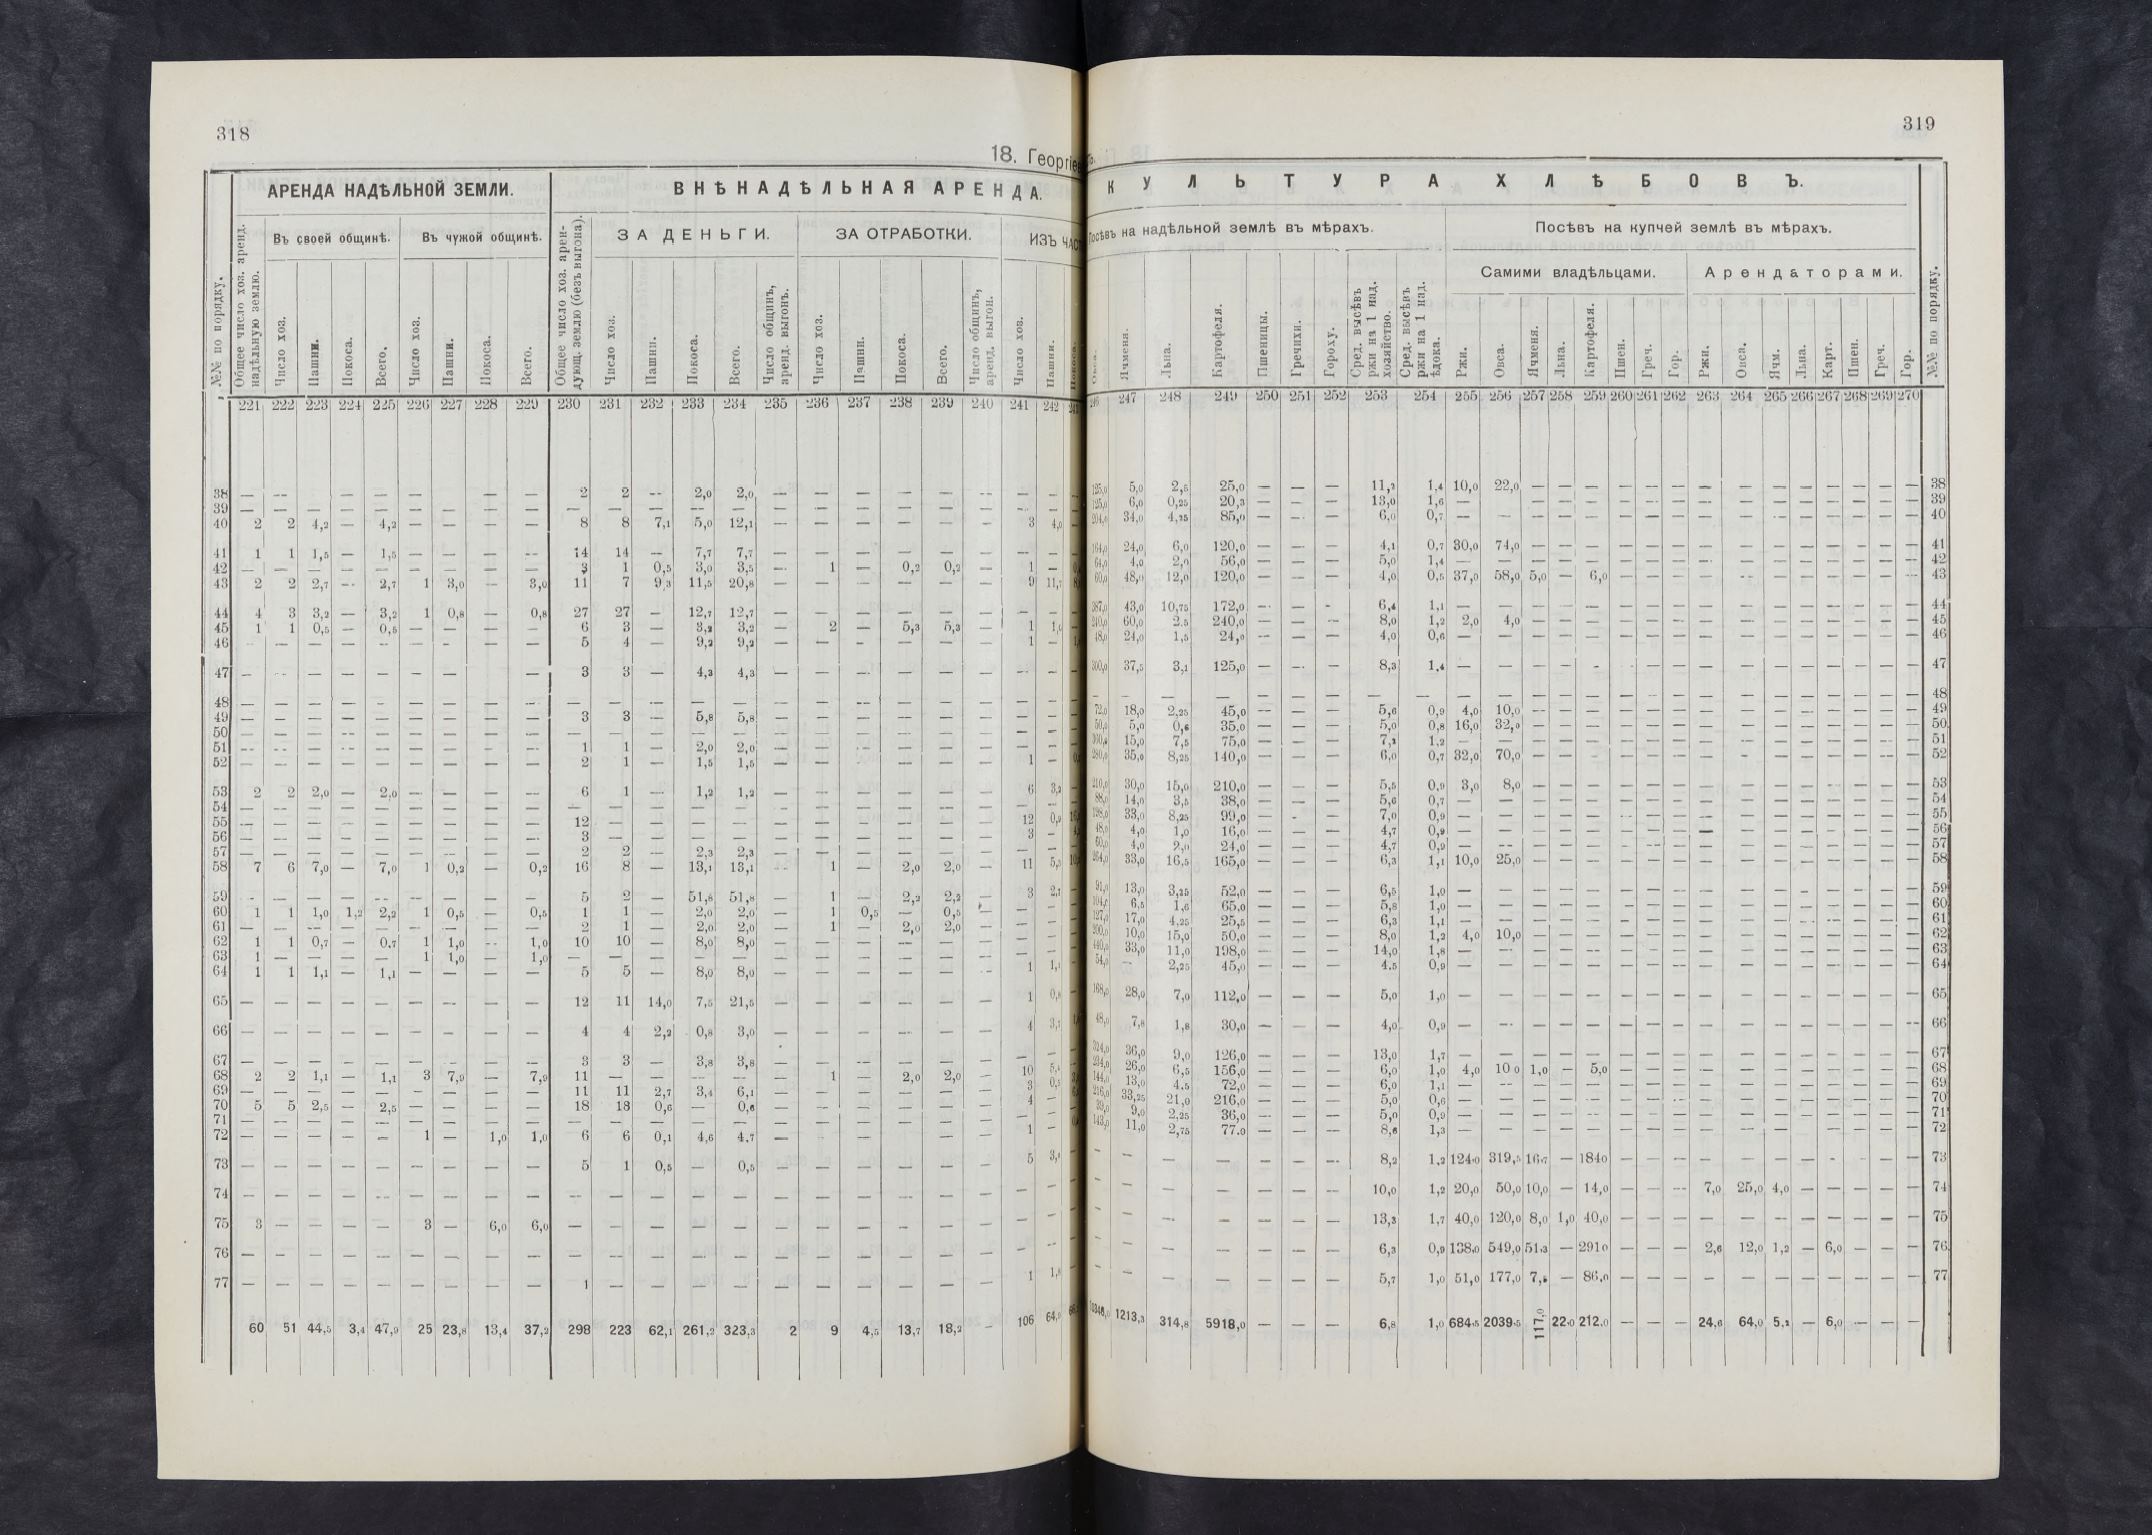 318
18. Георгіе
АРЕНДА НАДѢЛЬНОЙ ЗЕМЛИ.
ВНѢНАДѢЛЬНАЯ АРЕНДА.
Въ своей общинѣ. Въ чужой общинѣ.
ЗА ДЕНЬГИ. ЗА ОТРАБОТКИ. ИЗЪ ЧАС
№№ по порядку. Общее число хоз. аренд. надѣльную землю. Число хоз. Пашни. Покоса. Всего. Число хоз. Пашни. Покоса. Всего. Общее число хоз. арендующ. землю (безъ выгона). Число хоз. Пашни. Покоса. Всего. Число общинъ, аренд. выгонъ. Число хоз. Пашни. Покоса. Всего. Число общинъ, аренд. выгон. Число хоз. Пашни. Покоса.
221 222 223 224 225 226 227 228 229 230 231 232 233 234 235 236 237 238 239 240 241 242
38 — — — — — — — 2 2 — 2,0 2,0 — — — — — — — — —
39 — — — — — — — — — — — — — — — — — — — — — — —
40 2 2 4,2 — 4,2 — — — — 8 8 7,1 5,0 12,1 — — — — — — 3 4,0 —
41 1 1 1,5 — 1,5 — — — — 14 14 — 7,7 7,7 — — — — — — — — —
42 — — — — — — — — — 3 1 0,5 3,0 3,5 — 1 — 0,2 0,2 — 1 —
43 2 2 2,7 — 2,7 1 3,0 — 3,0 11 7 9,3 11,5 20,8 — — — — — — 9 11,7
44 4 3 3,2 — 3,2 1 0,8 — 0,8 27 27 — 12,7 12,7 — — — — — — — — —
45 1 1 0,5 — 0,5 — — — — 6 3 — 3,2 3,2 — 2 — 5,3 5,3 — 1 1,0 —
46 — — — — — — — — — 5 4 — 9,2 9,2 — — — — — — 1 —
47 — — — — — — — — 3 3 — 4,3 4,3 — — — — — — — — —
48 — — — — — — — — — — — — — — — — — — — — — — —
49 — — — — — — — — — 3 3 — 5,8 5,8 — — — — — — — — —
50 — — — — — — — — — — — — — — — — — — — — — — —
51 — — — — — — — — — 1 1 — 2,0 2,0 — — — — — — — — —
52 — — — — — — — — — 2 1 — 1,5 1,5 — — — — — — 1 —
53 2 2 2,0 — 2,0 — — — — 6 1 — 1,2 1,2 — — — — — — 6 3,2 —
54 — — — — — — — — — — — — — — — — — — — — — — —
55 — — — — — — — — — 12 — — — — — — — — — — 12 0,9
56 — — — — — — — — — 3 — — — — — — — — — — 3 —
57 — — — — — — — — — 2 2 — 2,3 2,3 — — — — — — — — —
58 7 6 7,0 — 7,0 1 0,2 — 0,2 16 8 — 13,1 13,1 — 1 — 2,0 2,0 — 11 5,5
59 — — — — — — — — — 5 2 — 51,8 51,8 — 1 — 2,2 2,2 — 3 2,7 —
60 1 1 1,0 1,2 2,2 1 0,5 — 0,5 1 1 — 2,0 2,0 — 1 0,5 — 0,5 — — — —
61 — — — — — — — — — 2 1 — 2,0 2,0 — 1 — 2,0 2,0 — — — —
62 1 1 0,7 — 0,7 1 1,0 — 1,0 10 10 — 8,0 8,0 — — — — — — — — —
63 1 — — — — 1 1,0 — 1,0 — — — — — — — — — — — — — —
64 1 1 1,1 — 1,1 — — — — 5 5 — 8,0 8,0 — — — — — — 1 1,1 —
65 — — — — — — — — — 12 11 14,0 7,5 21,5 — — — — — — 1 0,8 —
66 — — — — — — — — — 4 4 2,2 0,8 3,0 — — — — — — 4 3,7
67 — — — — — — — — — 3 3 — 3,8 3,8 — — — — — — — — —
68 2 2 1,1 — 1,1 3 7,9 — 7,9 11 — — — — — 1 — 2,0 2,0 — 10 5,4
69 — — — — — — — — — 11 11 2,7 3,4 6,1 — — — — — — 3 0,5
70 5 5 2,5 — 2,5 — — — — 18 18 0,6 — 0,6 — — — — — — 4 —
71 — — — — — — — — — — — — — — — — — — — — — — —
72 — — — — — 1 — 1,0 1,0 6 6 0,1 4,6 4,7 — — — — — — 1 —
73 — — — — — — — — — 5 1 0,5 — 0,5 — — — — — — 5 3,4 —
74 — — — — — — — — — — — — — — — — — — — — — — —
75 3 — — — — 3 — 6,0 6,0 — — — — — — — — — — — — — —
76 — — — — — — — — — — — — — — — — — — — — — — —
77 — — — — — — — — — 1 — — — — — — — — — — 1 1,8 —
60 51 44,5 3,4 47,9 25 23,8 13,4 37,2 298 223 62,1 261,2 323,3 2 9 4,5 13,7 18,2 — 106 64,9
319
КУЛЬТУРА ХЛѢБОВЪ.
Посѣвъ на надѣльной землѣ въ мѣрахъ. Посѣвъ на купчей землѣ въ мѣрахъ.
Самими владѣльцами. Арендаторами.
Овса. Ячменя. Льна. Картофеля. Пшеницы. Гречихи. Гороху. Сред. высѣвъ ржи на 1 над. хозяйство. Сред. высѣвъ ржи на 1 над. ѣдока. Ржи. Овса. Ячменя. Льна. Картофеля. Пшен. Греч. Гор. Ржи. Овса. Ячм. Льна. Карт. Пшен. Греч. Гор. №№ по порядку.
247 248 249 250 251 252 253 254 255 256 257 258 259 260 261 262 263 264 265 266 267 268 269 270
125,0 5,0 2,5 25,0 — — — 11,2 1,4 10,0 22,0 — — — — — — — — — — — — — — 38
125,0 6,0 0,25 20,3 — — — 13,0 1,6 — — — — — — — — — — — — — — — — 39
204,0 34,0 4,25 85,0 — — — 6,0 0,7 — — — — — — — — — — — — — — — — 40
164,0 24,0 6,0 120,0 — — — 4,1 0,7 30,0 74,0 — — — — — — — — — — — — — — 41
64,0 4,0 2,0 56,0 — — — 5,0 1,4 — — — — — — — — — — — — — — — — 42
60,0 48,0 12,0 120,0 — — — 4,0 0,5 37,0 58,0 5,0 — 6,0 — — — — — — — — — — — 43
387,0 43,0 10,75 172,0 — — — 6,4 1,1 — — — — — — — — — — — — — — — — 44
240,0 60,0 2,5 240,0 — — — 8,0 1,2 2,0 4,0 — — — — — — — — — — — — — — 45
48,0 24,0 1,5 24,0 — — — 4,0 0,6 — — — — — — — — — — — — — — — — 46
300,0 37,5 3,1 125,0 — — — 8,3 1,4 — — — — — — — — — — — — — — — — 47
— — — — — — — — — — — — — — — — — — — — — — — — — 48
72,0 18,0 2,25 45,0 — — — 5,6 0,9 4,0 10,0 — — — — — — — — — — — — — — 49
50,0 5,0 0,6 35,0 — — — 5,0 0,8 16,0 32,0 — — — — — — — — — — — — — — 50
15,0 7,5 75,0 — — — 7,2 1,2 — — — — — — — — — — — — — — — — 51
280,0 35,0 8,25 140,0 — — — 6,0 0,7 32,0 70,0 — — — — — — — — — — — — — — 52
210,0 30,0 15,0 210,0 — — — 5,5 0,9 3,0 8,0 — — — — — — — — — — — — — — 53
88,0 14,0 3,5 38,0 — — — 5,6 0,7 — — — — — — — — — — — — — — — — 54
198,0 33,0 8,25 99,0 — — — 7,0 0,9 — — — — — — — — — — — — — — — — 55
48,0 4,0 1,0 16,0 — — — 4,7 0,9 — — — — — — — — — — — — — — — — 56
60,0 4,0 2,0 24,0 — — — 4,7 0,9 — — — — — — — — — — — — — — — — 57
264,0 33,0 16,5 165,0 — — — 6,3 1,1 10,0 25,0 — — — — — — — — — — — — — — 58
91,0 13,0 3,25 52,0 — — — 6,5 1,0 — — — — — — — — — — — — — — — — 59
104,0 6,5 1,6 65,0 — — — 5,8 1,0 — — — — — — — — — — — — — — — — 60
127,0 17,0 4,25 25,5 — — — 6,3 1,1 — — — — — — — — — — — — — — — — 61
200,0 10,0 15,0 50,0 — — — 8,0 1,2 4,0 10,0 — — — — — — — — — — — — — — 62
440,0 33,0 11,0 198,0 — — — 14,0 1,8 — — — — — — — — — — — — — — — — 63
54,0 — 2,25 45,0 — — — 4,5 0,9 — — — — — — — — — — — — — — — — 64
168,0 28,0 7,0 112,0 — — — 5,0 1,0 — — — — — — — — — — — — — — — — 65
48,0 7,8 1,8 30,0 — — — 4,0 0,9 — — — — — — — — — — — — — — — — 66
324,0 36,0 9,0 126,0 — — — 13,0 1,7 — — — — — — — — — — — — — — — — 67
234,0 26,0 6,5 156,0 — — — 6,0 1,0 4,0 10 0 1,0 — 5,0 — — — — — — — — — — — 68
144,0 13,0 4,5 72,0 — — — 6,0 1,1 — — — — — — — — — — — — — — — — 69
216,0 33,25 21,0 216,0 — — — 5,0 0,6 — — — — — — — — — — — — — — — — 70
39,0 9,0 2,25 36,0 — — — 5,0 0,9 — — — — — — — — — — — — — — — — 71
143,0 11,0 2,75 77,0 — — — 8,6 1,3 — — — — — — — — — — — — — — — — 72
— — — — — — — 8,2 1,2 124,0 319,5 16,7 — 184 0 — — — — — — — — — — — 73
— — — — — — — 10,0 1,2 20,0 50,0 10,0 — 14,0 — — — 7,0 25,0 4,0 — — — — — 74
— — — — — — — 13,3 1,7 40,0 120,0 8,0 1,0 40,0 — — — — — — — — — — — 75
— — — — — — — 6,3 0,9 138,0 549,0 51,3 — 291 0 — — — 2,6 12,0 1,2 — 6,0 — — — 76
— — — — — — — 5,7 1,0 51,0 177,0 7,5 — 86,0 — — — — — — — — — — — 77
1213,3 314,8 5918,0 — — — 6,8 1,0 684,5 2039,5 117,0 22,0 212,0 — — — 24,6 64,0 5,2 — 6,0 — — —